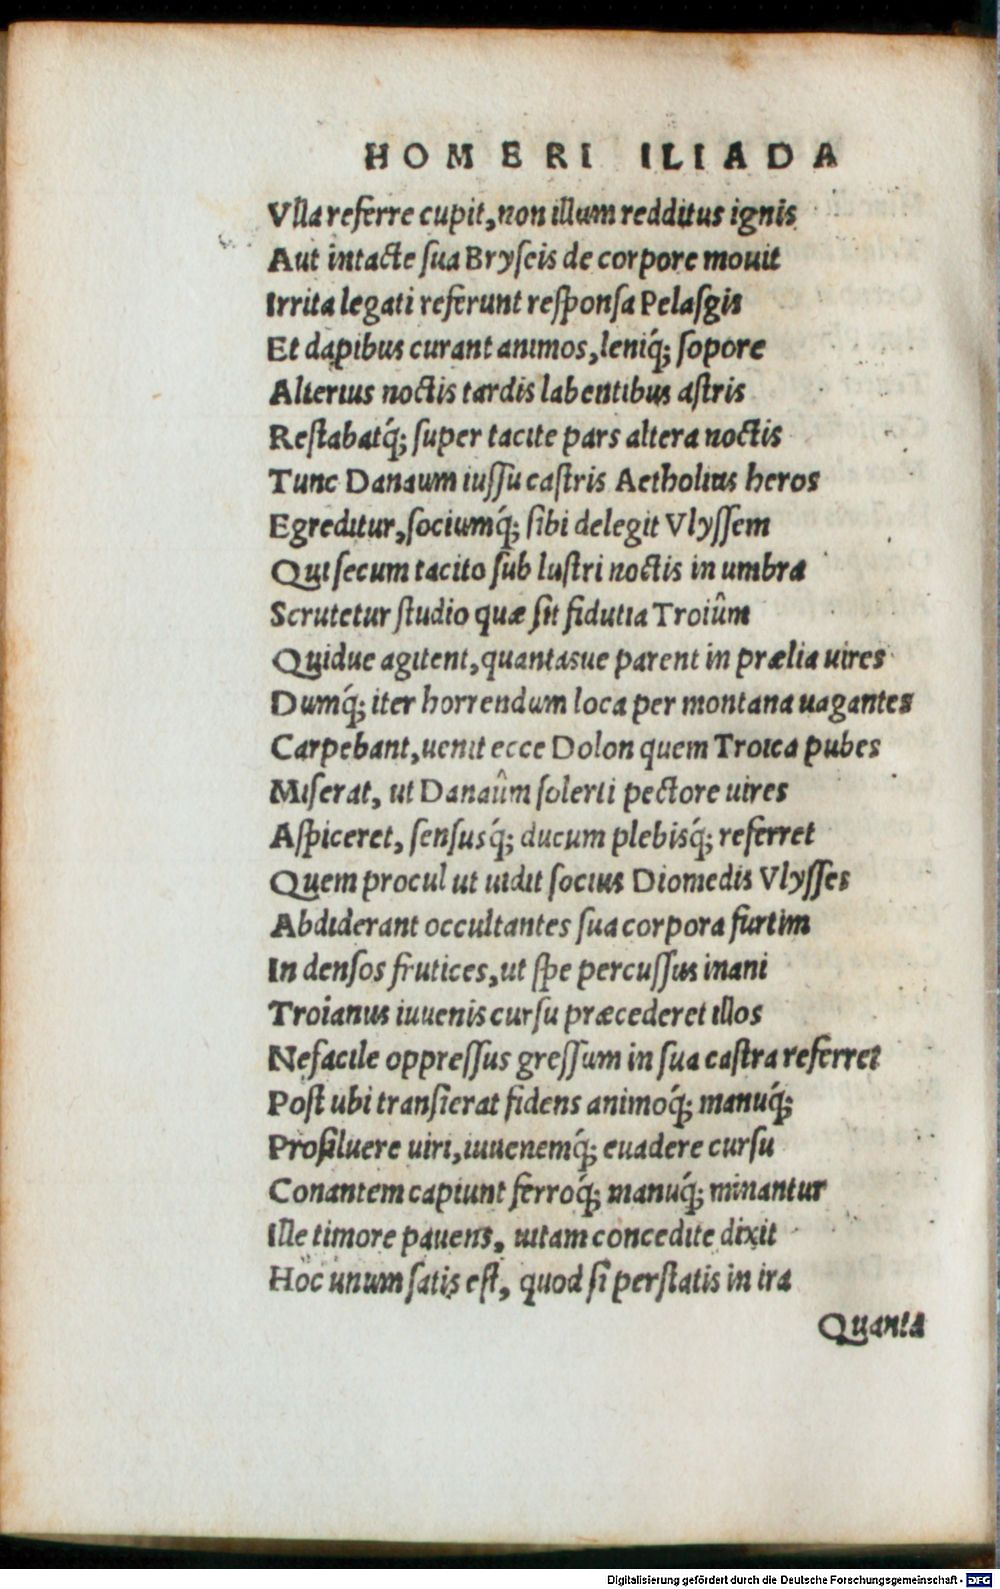 HOMERI ILIADA
Vlla referre cupit, non illum redditus ignis
Aut intacte sua Bryſeis de corpore mouit
Irrita legati referunt reſponſa Pelaſgis
Et dapibus curant animos, leniq́; ſopore
Alterius noctis tardis labentibus aſtris
Reſtabatq́; ſuper tacite pars altera noctis
Tunc Danaum iuſſu caſtris Aetholius heros
Egreditur, ſociumq́; ſibi delegit Vlyſſem
Qui ſecum tacito ſub luſtri noctis in umbra
Scrutetur ſtudio quæ ſit fidutia Troiûm
Quidue agitent, quantasue parent in prælia uires
Dumq́; iter horrendum loca per montana uagantes
Carpebant, uenit ecce Dolon quem Troica pubes
Miſerat, ut Danaûm ſolerti pectore uires
Aſpiceret, ſenſusq́; ducum plebisq́; referret
Quem procul ut uidit ſocius Diomedis Vlyſſes
Abdiderant occultantes ſua corpora furtim
In denſos frutices, ut ſpe percuſſus inani
Troianus iuuenis curſu præcederet illos
Nefacile oppreſſus greſſum in ſua caſtra referret
Poſt ubi tranſierat fidens animoq́; manuq́;
Proſiluere uiri, iuuenemq́; euadere curſu
Conantem capiunt ferroq́; manuq́; minantur
Ille timore pauens, uitam concedite dixit
Hoc unum ſatis eſt, quod ſi perſtatis in ira
Quanta
Digitalisierung gefördert durch die Deutsche Forschungsgemeinschaft - DFG